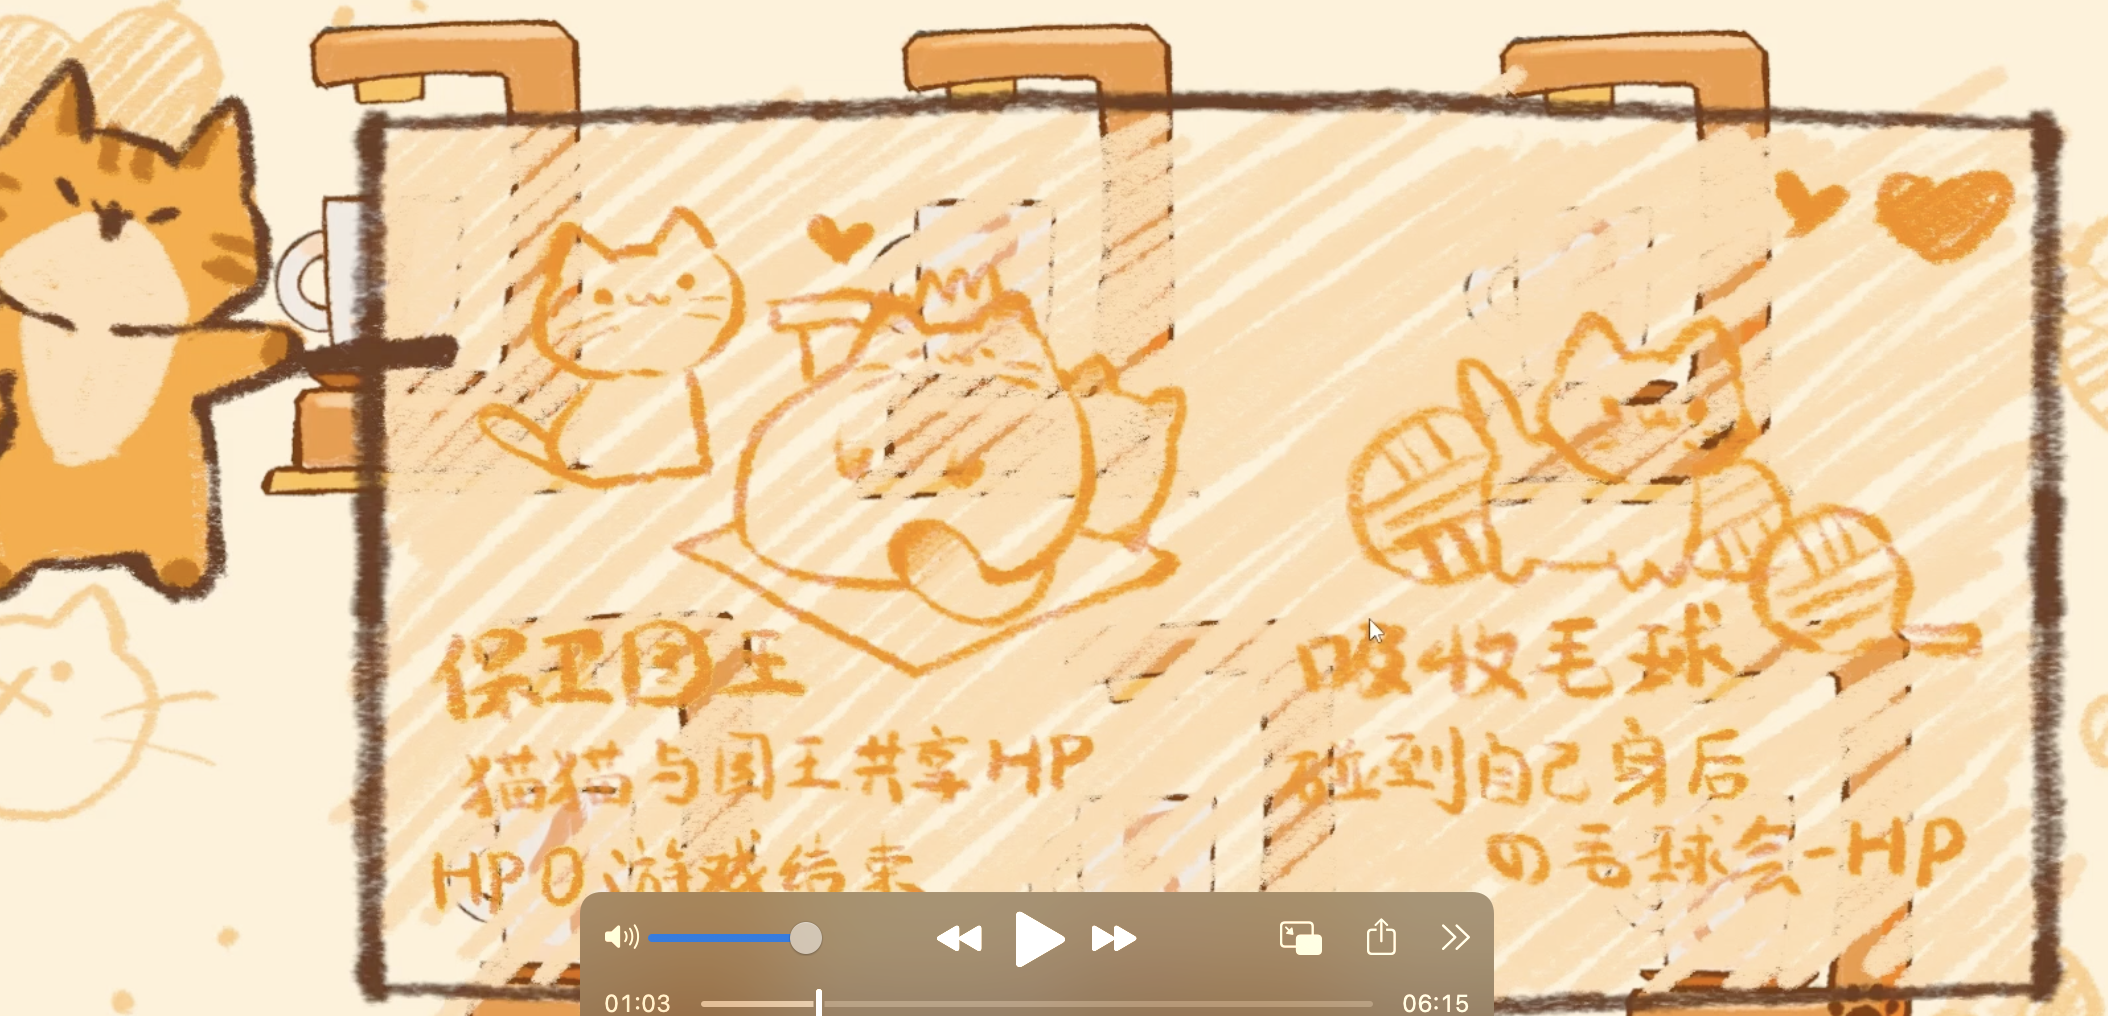 保卫国王
猫猫与国王共享HP
HP0游戏结束
吸收毛球
碰到自己身后
の毛球会-HP
01:03
06:15